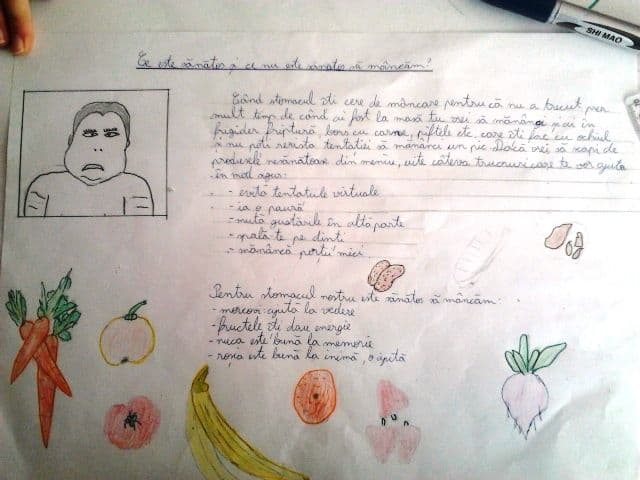 Ce este sănătos și ce nu este sănătos să mâncăm?
Când stomacul îți cere de mâncare pentru că nu a trecut prea
mult timp de când ai fost la masă tu vrei să mănânci și ai în
frigider friptură, borș cu carne, piftele etc. care îți fac cu ochiul
și nu poți rezista tentației să mănânci un pic. Dacă vrei să scapi de
produsele nesănătoase din meniu, uite câteva trucruri care te vor ajuta
în mod sigur:
- evită tentațiile virtuale
- ia o pauză
- mută gustările în altă parte
- spală-te pe dinți
- mănâncă porții mici
Pentru stomacul nostru este sănătos să mâncăm:
- morcovi: ajută la vedere
- fructele îți dau energie
- nuca este bună la memorie
- roșia este bună la inimă, o ajută
SHI MAO